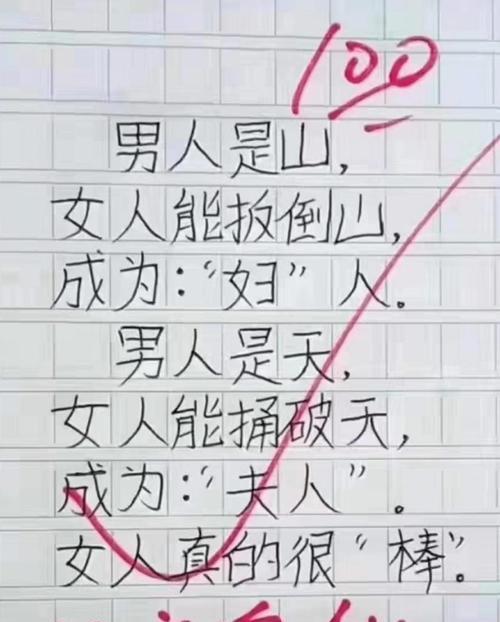 100
男人是山，
女人能扳倒山，
成为：“妇”人。
男人是天，
女人能捅破天，
成为：“夫人”。
女人真的很“棒”。